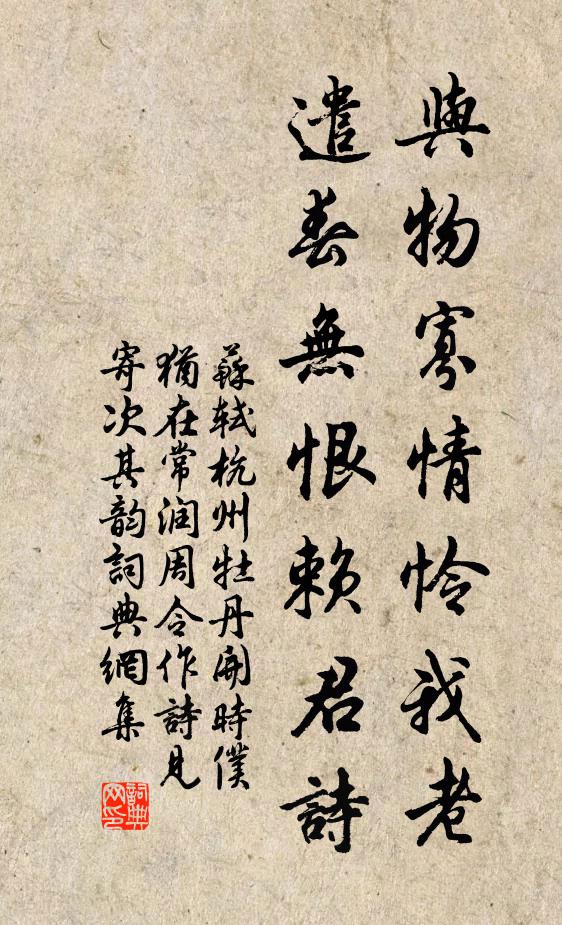 與物寡情怜我老
遣春無恨賴君詩
蘇軾杭州牡丹開時僕
猶在常润周令作詩見
寄次其韵詞典網集
詞典网印